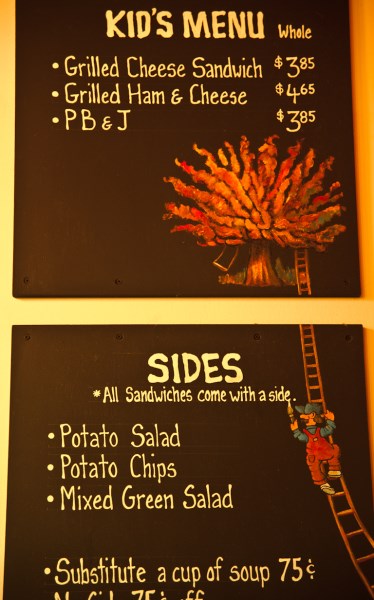 KID'S MENU Whole
• Grilled Cheese Sandwich $3.85
• Grilled Ham & Cheese $4.65
• PB & J $3.85
SIDES
*All Sandwiches come with a side.
• Potato Salad
• Potato Chips
• Mixed Green Salad
• Substitute a cup of soup 75¢
No Side 75¢ off